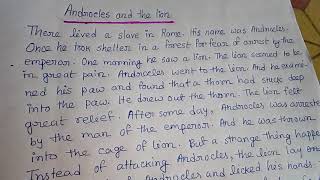 Androcles and the lion
There lived a slave in Rome. His name was Androcles.
Once he took shelter in a forest for fear of arrest by the
emperor. One morning he saw a lion. The lion seemed to be
in great pain. Androcles went to the lion. And he exami-
ned his paw and found that a thorn had stuck deep
into the paw. He drew out the thorn. The lion felt
great relief. After some day, Androcles was arreste
by the man of the emperor. And he was thrown
into the cage of lion. But a strange thing happe
Instead of attacking Androcles, the lion lay
of Androcles and licked his hands.